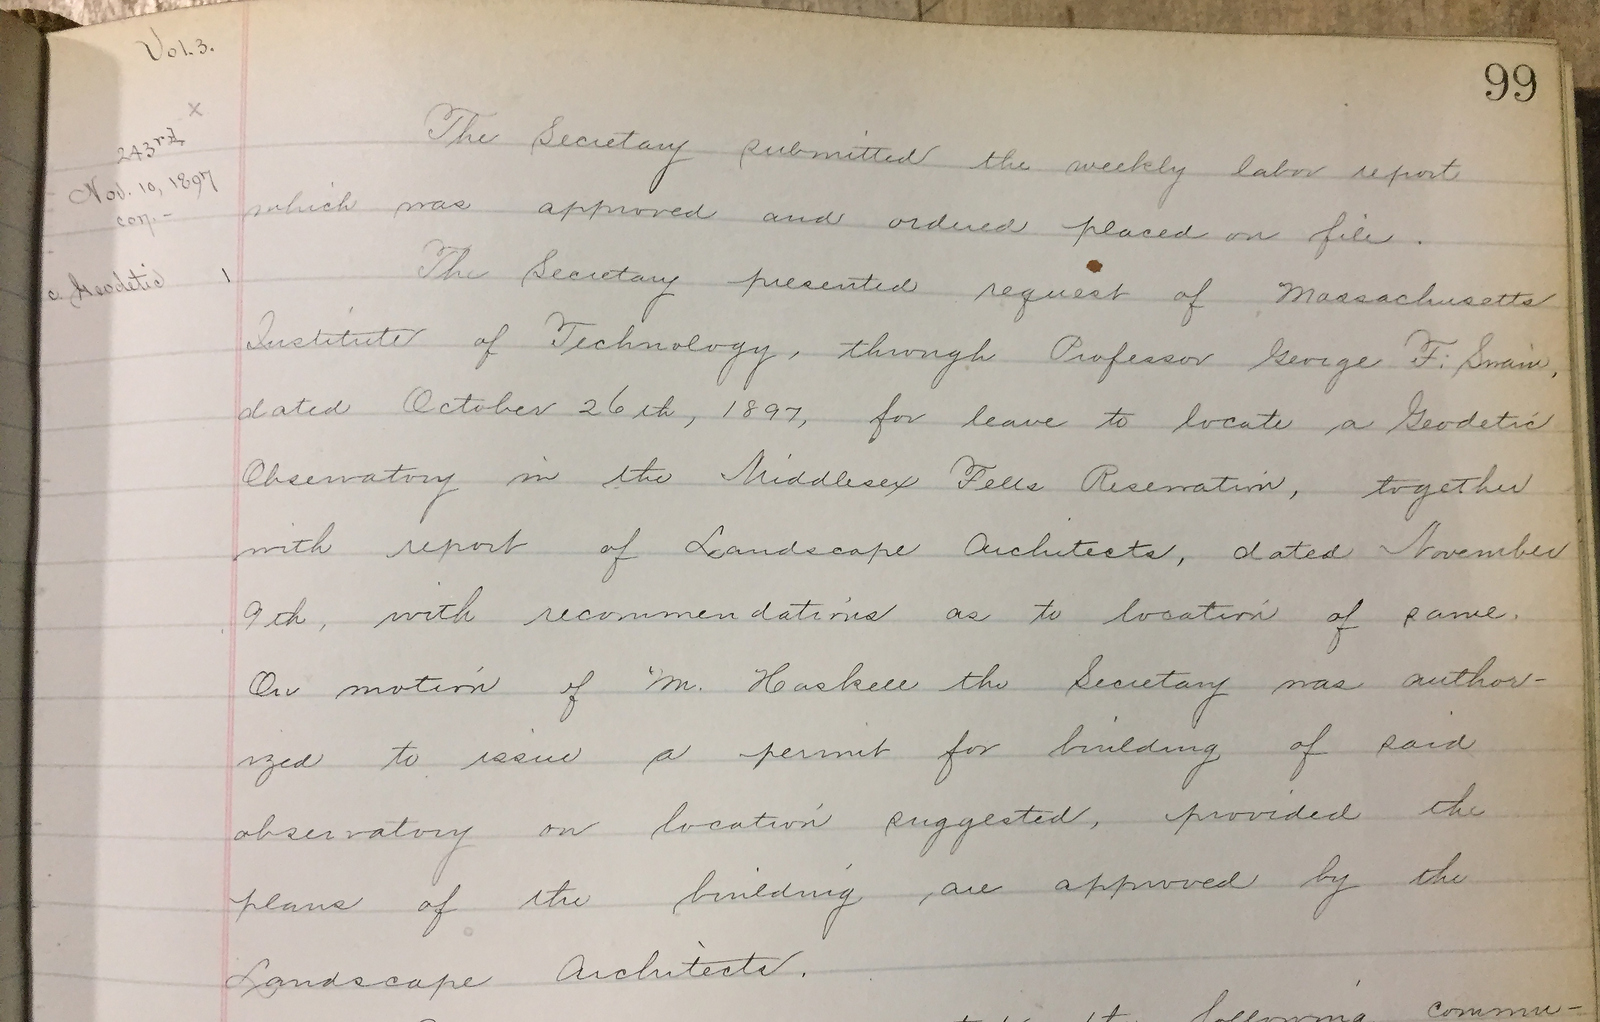 Vol. 3.
99
x
243rd
Nov. 10, 1897
con.-
The Secretary submitted the weekly labor report
which was approved and ordered placed on file.
c. Geodetic 1
The Secretary presented request of Massachusetts
Institute of Technology, through Professor George F. Swain,
dated October 26th, 1897, for leave to locate a Geodetic
Observatory in the Middlesex Fells Reservation, together
with report of Landscape Architects, dated November
9th, with recommendations as to location of same.
On motion of Mr. Haskell the Secretary was author-
ized to issue a permit for building of said
observatory on location suggested, provided the
plans of the building are approved by the
Landscape Architects.
following commu-